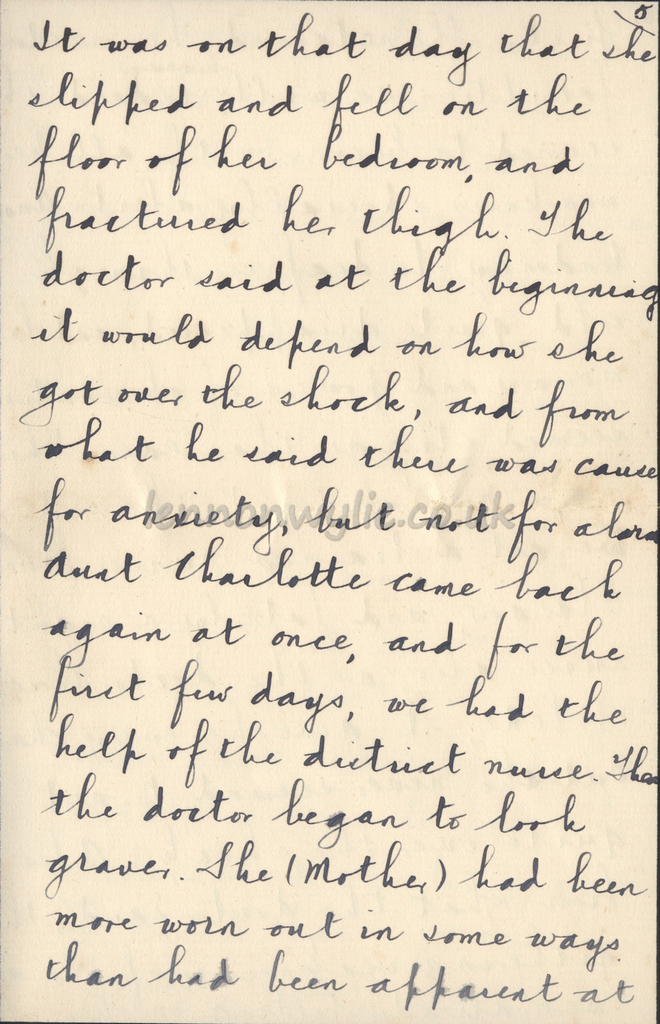 5
It was on that day that she
slipped and fell on the
floor of her bedroom, and
fractured her thigh. The
doctor said at the beginning
it would depend on how she
got over the shock, and from
what he said there was cause
for anxiety, but not for alarm
lennonwylie.co.uk
Aunt Charlotte came back
again at once, and for the
first few days, we had the
help of the district nurse. Then
the doctor began to look
graver. She (Mother) had been
more worn out in some ways
than had been apparent at